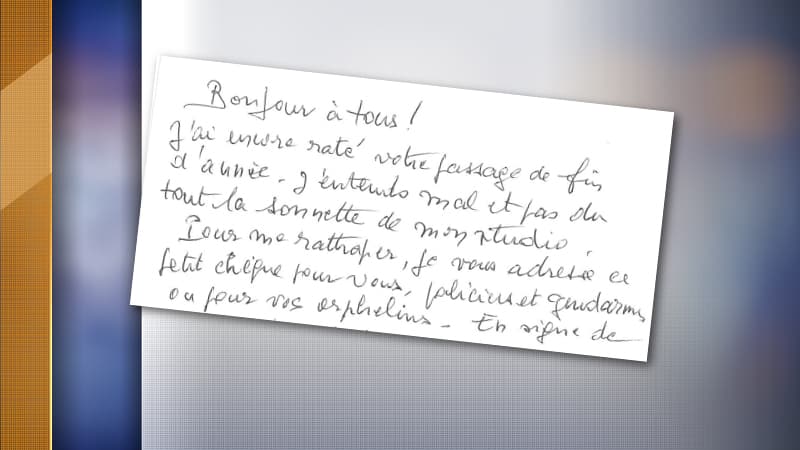 Bonjour à tous !
J'ai encore raté votre passage de fin
d'année. J'entends mal et pas du
tout la sonnette de mon studio.
Pour me rattraper, je vous adresse ce
petit chèque pour vous, policiers et gendarmes
ou pour vos orphelins. En signe de